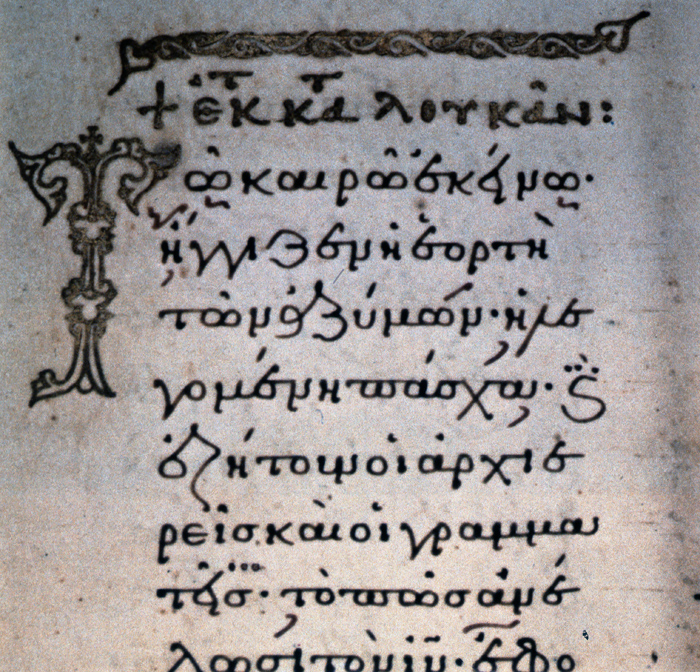 + ἐκ τ κατ λουκᾶν:
Τῶ καιρῶ ἐκείνω·
ἤγγιζεν ἡ ἑορτὴ
τῶν ἀζύμων· ἡ λε
γομένη πάσχα· ϗ
ἐζήτουν οἱ ἀρχιε
ρεῖς καὶ οἱ γραμμα
τεῖς· τὸ πῶς ἀνέ
λωσι τὸν ιν· ἐφο